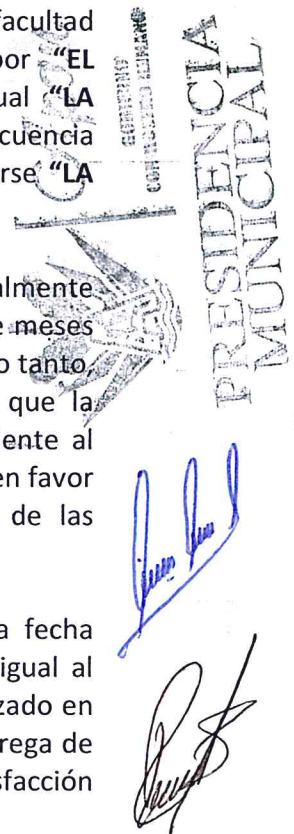 facultad
por "EL
ual "LA
cuencia
rse "LA
almente
e meses
o tanto,
que la
ente al
en favor
de las
a fecha
igual al
zado en
rega de
sfacción
PRESIDENCIA
MUNICIPAL